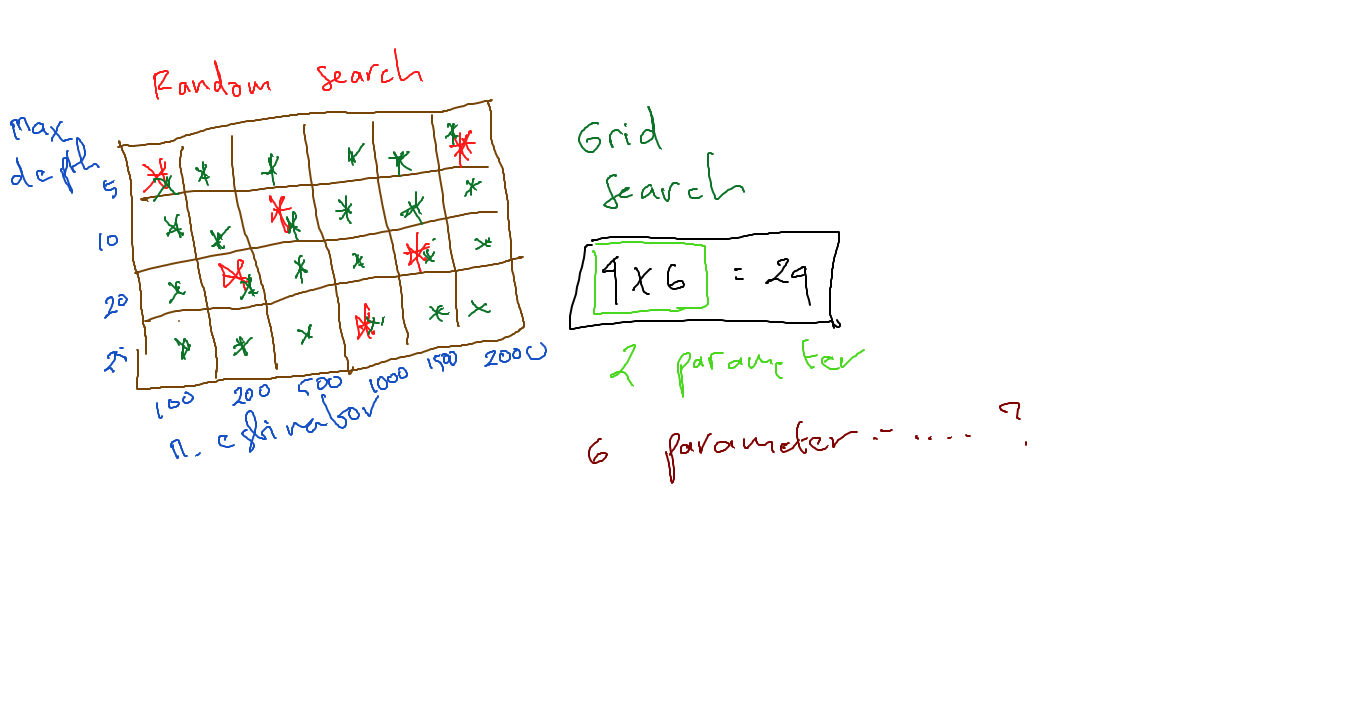 Random search
Max
depth
5
10
20
25
100 200 500 1000 1500 2000
n_estimator
Grid
search
4 x 6 = 24
2 parameter
6 parameter = ..... ?